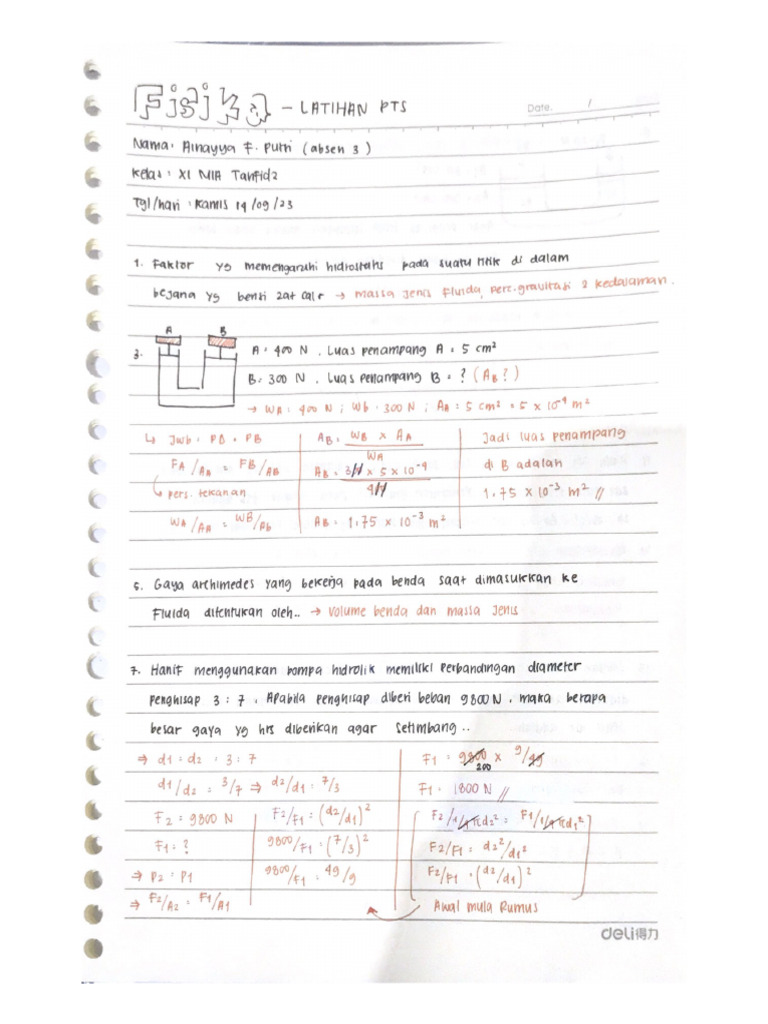 Fisika - LATIHAN PTS
Date. /
Nama: Ainayya F. Putri (absen 3)
Kelas: XI MIA Tahfidz
Tgl/hari: Kamis 14/09/23
1. Faktor yg memengaruhi hidrostatis pada suatu titik di dalam
bejana yg berisi zat cair → massa jenis fluida, perc.gravitasi & kedalaman.
A B
3. A = 400 N, Luas penampang A = 5 cm²
B = 300 N, Luas penampang B = ? (AB?)
→ WA = 400 N ; Wb = 300 N ; AA = 5 cm² = 5 x 10⁻⁴ m²
↳ Jwb = PB = PB
FA/AA = FB/AB
pers. tekanan
WA/AA = WB/Ab
AB = WB x AA
WA
AB = 3 x 5 x 10⁻⁴
4
AB = 1.75 x 10⁻³ m²
Jadi luas penampang
di B adalah
1.75 x 10⁻³ m² //
5. Gaya archimedes yang bekerja pada benda saat dimasukkan ke
Fluida ditentukan oleh.. → volume benda dan massa jenis
7. Hanif menggunakan pompa hidrolik memiliki perbandingan diameter
penghisap 3 : 7. Apabila penghisap diberi beban 9800 N, maka berapa
besar gaya yg hrs diberikan agar setimbang..
⇒ d1 = d2 = 3 : 7
d1/d2 = 3/7 ⇒ d2/d1 = 7/3
F2 = 9800 N
F1 = ?
⇒ P2 = P1
⇒ F2/A2 = F1/A1
F2/F1 = (d2/d1)²
9800/F1 = (7/3)²
9800/F1 = 49/9
F1 = 9800 x 9/49
200
F1 = 1800 N //
F2/1/4πd2² = F1/1/4πd1²
F2/F1 = d2²/d1²
F2/F1 = (d2/d1)²
Awal mula Rumus
deli得力